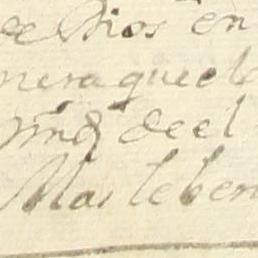 de Dios en
nera que el
de el
Mas le ben